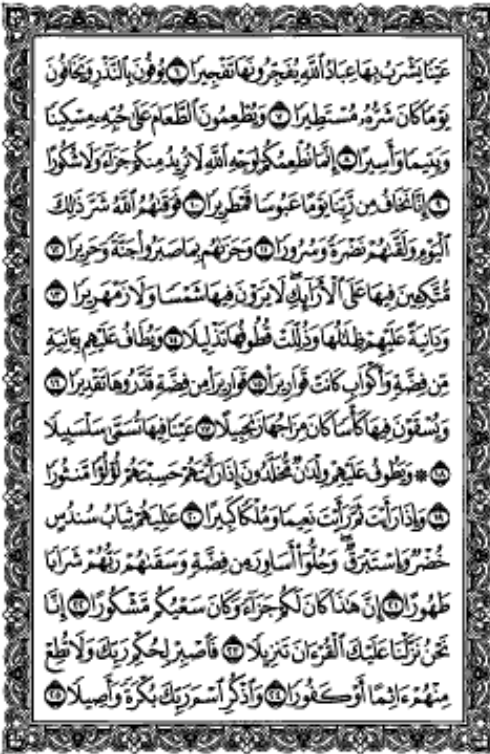 عَيْنًا يَشْرَبُ بِهَا عِبَادُ ٱللَّهِ يُفَجِّرُونَهَا تَفْجِيرًا ٦ يُوفُونَ بِٱلنَّذْرِ وَيَخَافُونَ
يَوْمًا كَانَ شَرُّهُۥ مُسْتَطِيرًا ٧ وَيُطْعِمُونَ ٱلطَّعَامَ عَلَىٰ حُبِّهِۦ مِسْكِينًا
وَيَتِيمًا وَأَسِيرًا ٨ إِنَّمَا نُطْعِمُكُمْ لِوَجْهِ ٱللَّهِ لَا نُرِيدُ مِنكُمْ جَزَآءً وَلَا شُكُورًا
٩ إِنَّا نَخَافُ مِن رَّبِّنَا يَوْمًا عَبُوسًا قَمْطَرِيرًا ١٠ فَوَقَىٰهُمُ ٱللَّهُ شَرَّ ذَٰلِكَ
ٱلْيَوْمِ وَلَقَّىٰهُمْ نَضْرَةً وَسُرُورًا ١١ وَجَزَىٰهُم بِمَا صَبَرُوا۟ جَنَّةً وَحَرِيرًا ١٢
مُّتَّكِـِٔينَ فِيهَا عَلَى ٱلْأَرَآئِكِ ۖ لَا يَرَوْنَ فِيهَا شَمْسًا وَلَا زَمْهَرِيرًا ١٣
وَدَانِيَةً عَلَيْهِمْ ظِلَٰلُهَا وَذُلِّلَتْ قُطُوفُهَا تَذْلِيلًا ١٤ وَيُطَافُ عَلَيْهِم بِـَٔانِيَةٍ
مِّن فِضَّةٍ وَأَكْوَابٍ كَانَتْ قَوَارِيرَا۠ ١٥ قَوَارِيرَا۟ مِن فِضَّةٍ قَدَّرُوهَا تَقْدِيرًا ١٦
وَيُسْقَوْنَ فِيهَا كَأْسًا كَانَ مِزَاجُهَا زَنجَبِيلًا ١٧ عَيْنًا فِيهَا تُسَمَّىٰ سَلْسَبِيلًا
١٨ ۞ وَيَطُوفُ عَلَيْهِمْ وِلْدَٰنٌ مُّخَلَّدُونَ إِذَا رَأَيْتَهُمْ حَسِبْتَهُمْ لُؤْلُؤًا مَّنثُورًا
١٩ وَإِذَا رَأَيْتَ ثَمَّ رَأَيْتَ نَعِيمًا وَمُلْكًا كَبِيرًا ٢٠ عَٰلِيَهُمْ ثِيَابُ سُندُسٍ
خُضْرٌ وَإِسْتَبْرَقٌ ۖ وَحُلُّوٓا۟ أَسَاوِرَ مِن فِضَّةٍ وَسَقَىٰهُمْ رَبُّهُمْ شَرَابًا
طَهُورًا ٢١ إِنَّ هَٰذَا كَانَ لَكُمْ جَزَآءً وَكَانَ سَعْيُكُم مَّشْكُورًا ٢٢ إِنَّا
نَحْنُ نَزَّلْنَا عَلَيْكَ ٱلْقُرْءَانَ تَنزِيلًا ٢٣ فَٱصْبِرْ لِحُكْمِ رَبِّكَ وَلَا تُطِعْ
مِنْهُمْ ءَاثِمًا أَوْ كَفُورًا ٢٤ وَٱذْكُرِ ٱسْمَ رَبِّكَ بُكْرَةً وَأَصِيلًا ٢٥